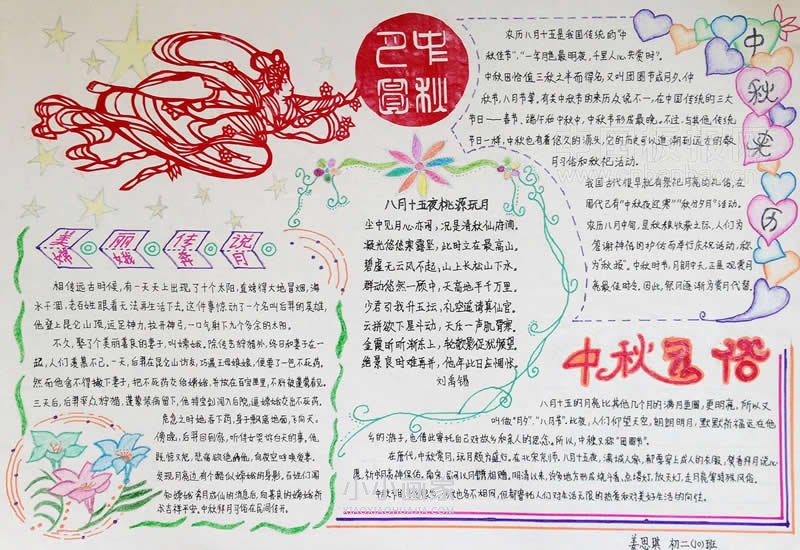 中秋
之圆
中秋来历
农历八月十五是我国传统的"中
秋佳节"，"一年月色最明夜，千里人心共赏时"。
中秋因恰值三秋之半而得名，又叫团圆节
仲秋
节，八月节等，有关中秋节的来历众说不一，在中国传统的三大
节日——春节、端午和中秋中，中秋节形成最晚。不过，与其他传统
节日一样，中秋也有着悠久的源头，它的历史可以追溯到远古的敬
月习俗和秋祀活动。
我国古代很早就有祭祀月亮的礼俗，在
周代已有"中秋夜迎寒""秋分夕月"活动。
农历八月中旬，是秋粮收获之际，人们为
答谢神佑的护佑而举行庆祝活动，称
为"秋报"。中秋时节，月朗中天，正是观赏月
亮最佳时令。因此，祭月逐渐为赏月代替。
八月十五夜桃源玩月
尘中见月心亦闲，况是清秋仙府间。
凝光悠悠寒露坠，此时立在最高山。
碧虚无云风不起，山上长松山下水。
群动悠然一顾中，天高地平千万里。
少君引我升玉坛，礼空遥请真仙官。
云軿欲下星斗动，天乐一声肌骨寒。
金霞昕昕渐东上，轮欹影促犹频望。
绝景良时难再并，他年此日应惆怅。
刘禹锡
美丽传说
嫦娥奔月
相传远古时候，有一天天上出现了十个太阳，直烤得大地冒烟，海
水干涸，老百姓眼看无法再生活下去。这件事惊动了一个名叫后羿的英雄，
他登上昆仑山顶，运足神力，拉开神弓，一口气射下九个多余的太阳。
不久，娶了个美丽善良的妻子，叫嫦娥。除传艺狩猎外，终日和妻子在一
起，人们羡慕不已。一天，后羿在昆仑山访友，巧遇王母娘娘，便要了一包不死药。
然而他舍不得撇下妻子，把不死药交给嫦娥，并放在百宝匣里，不料被蓬蒙看见。
三天后，后羿率众狩猎，蓬蒙装病留下，他持宝剑闯入后院，逼嫦娥交出不死药。
危急之时她吞下药，身子飘离地面飞向天。
傍晚，后羿回到家，听侍女哭诉白天的事，他
既惊又怒，悲痛欲绝
仰望夜空呼唤爱妻，
发现月亮边有个酷似嫦娥的身影。百姓们闻
知嫦娥奔月成仙的消息后，向善良的嫦娥祈
求吉祥平安。中秋拜月习俗在民间传开。
中秋习俗
八月十五的月亮比其他几个月的满月更圆，更明亮，所以又
叫做"月夕"，"八月节"。此夜，人们仰望天空，朗朗明月，默默祈福远在他
乡的游子，也借此寄托自己对故乡和亲人的思念。所以，中秋又称"团圆节"。
在唐代，中秋赏月、玩月颇为盛行。在北宋京师，八月十五夜，满城人家，
都要穿上成人的衣服，焚香拜月说心
愿，祈求月亮神保佑。南宋，民间以月饼相赠。明清以来，许多地方形成烧斗香、点塔灯、放天灯、走月亮等特殊风俗。
但都寄托人们对生活无限的热爱和对美好生活的向往。
小小画家
XIAOXIAOHUAJIA.COM
姜思琪 初二(10)班